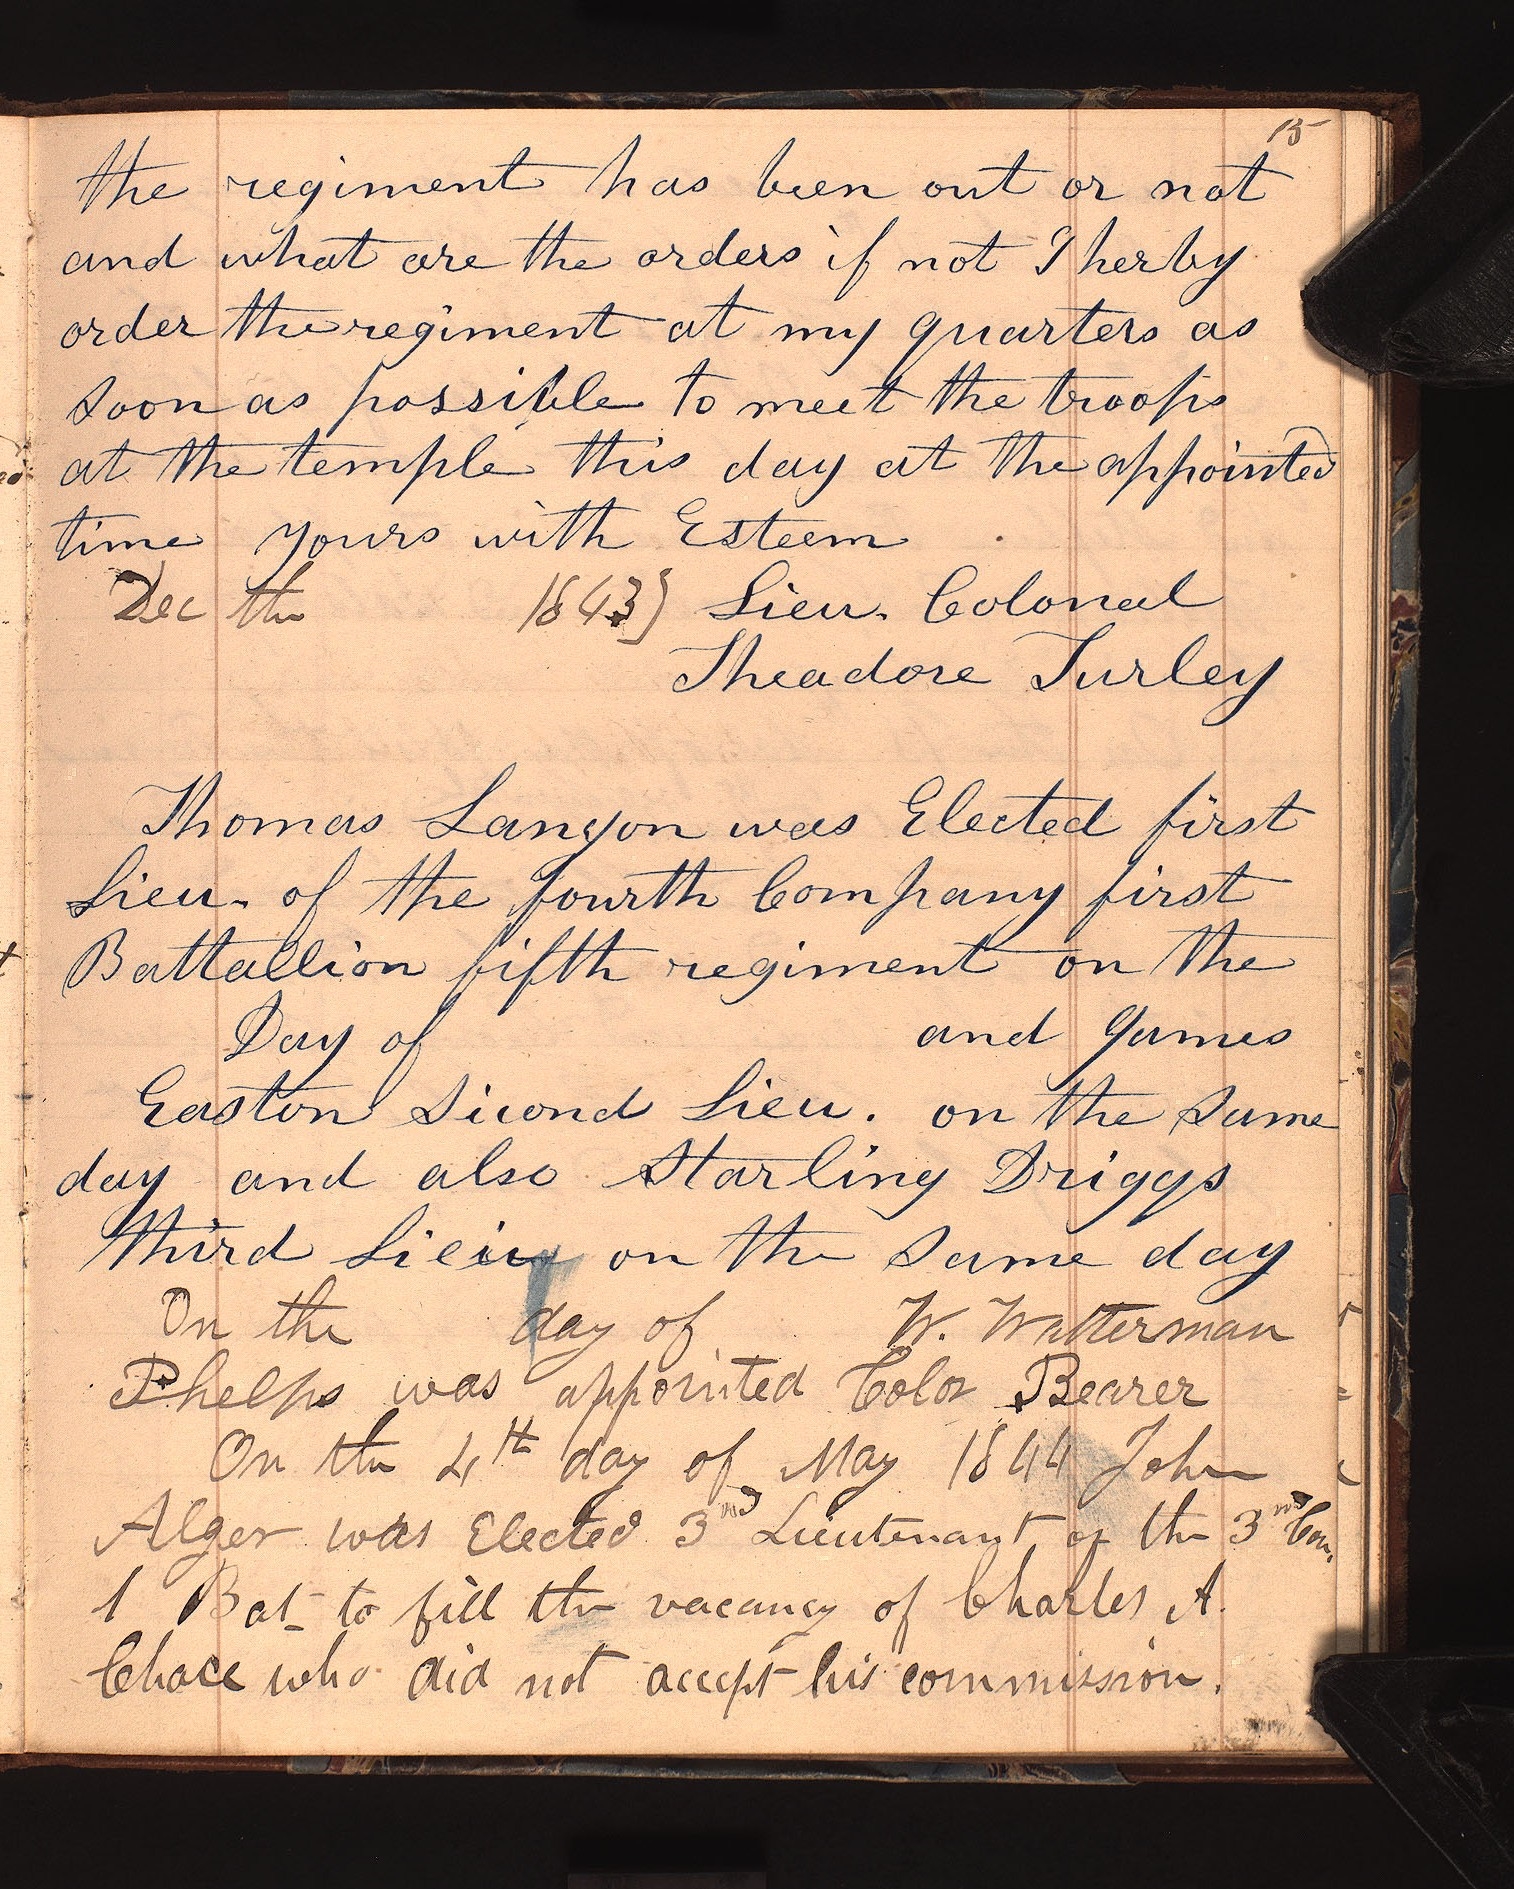 15
the regiment has been out or not
and what are the orders if not I herby
order the regiment at my quarters as
soon as possible to meet the troops
at the temple this day at the appointed
time yours with Esteem
Dec th 1843} Lieu. Colonal
Theadore Turley
Thomas Lanyon was Elected first
Lieu. of the fourth Company first
Battallion fifth regiment on the
Day of and James
Easton Second Lieu. on the same
day and also Starling Driggs
third Lieu on the same day
On the day of W. Watterman
Phelps was appointed Color Bearer
On the 4th day of May 1844 John
Alger was Elected 3nd Lieutenant of the 3nd Com.
1 Bat to fill the vacancy of Charles A.
Chace who did not accept his commission.